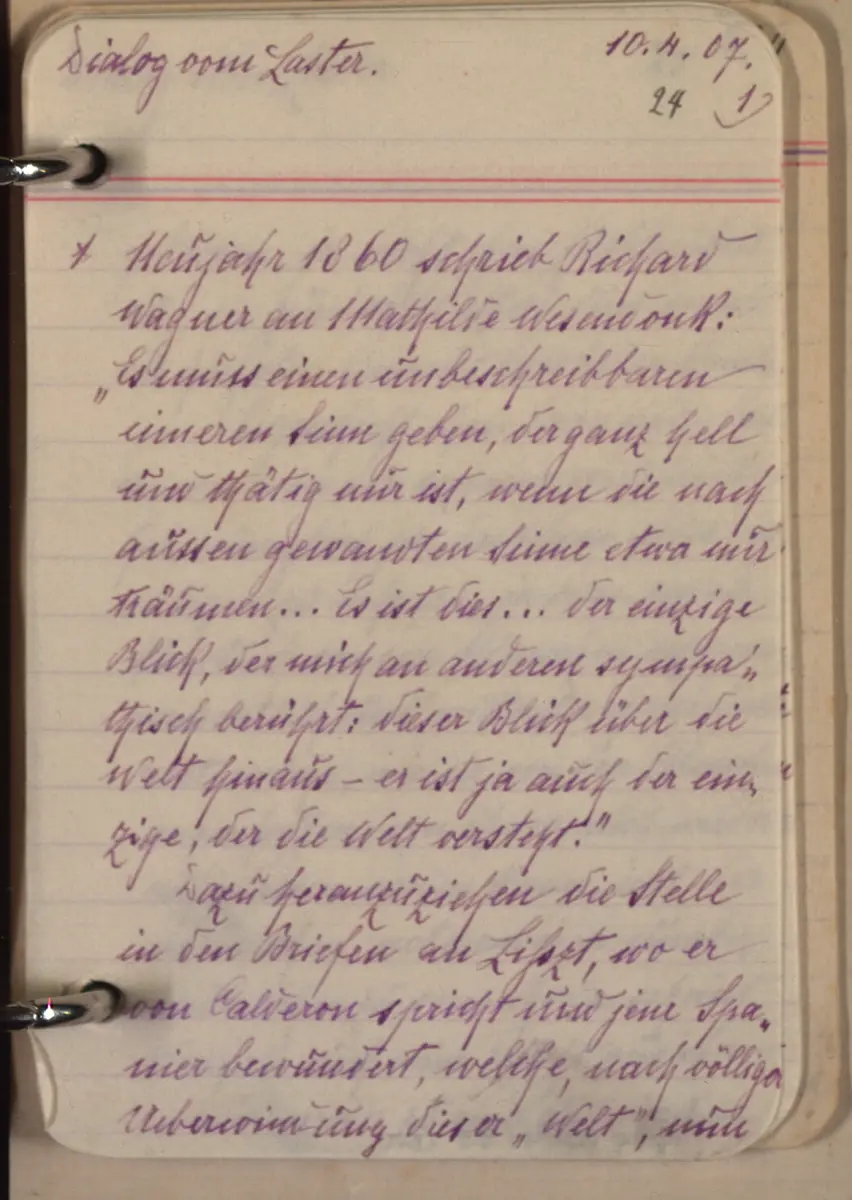 Dialog vom Laster.
10.4.07.
24 1
* Neujahr 1860 schrieb Richard
Wagner an Mathilde Wesendonk:
„Es muss einen unbeschreibbaren
inneren Sinn geben, der ganz hell
und thätig nur ist, wenn die nach
aussen gewandten Sinne etwa nur
träumen... Es ist dies... der einzige
Blick, der mich an anderen sympa-
thisch berührt: dieser Blick über die
Welt hinaus – er ist ja auch der ein-
zige, der die Welt versteht."
Dazu heranzuziehen die Stelle
in den Briefen an Liszt, wo er
von Calderon spricht und jene Spa-
nier bewundert, welche, nach völliger
Ueberwindung dieser „Welt", nun